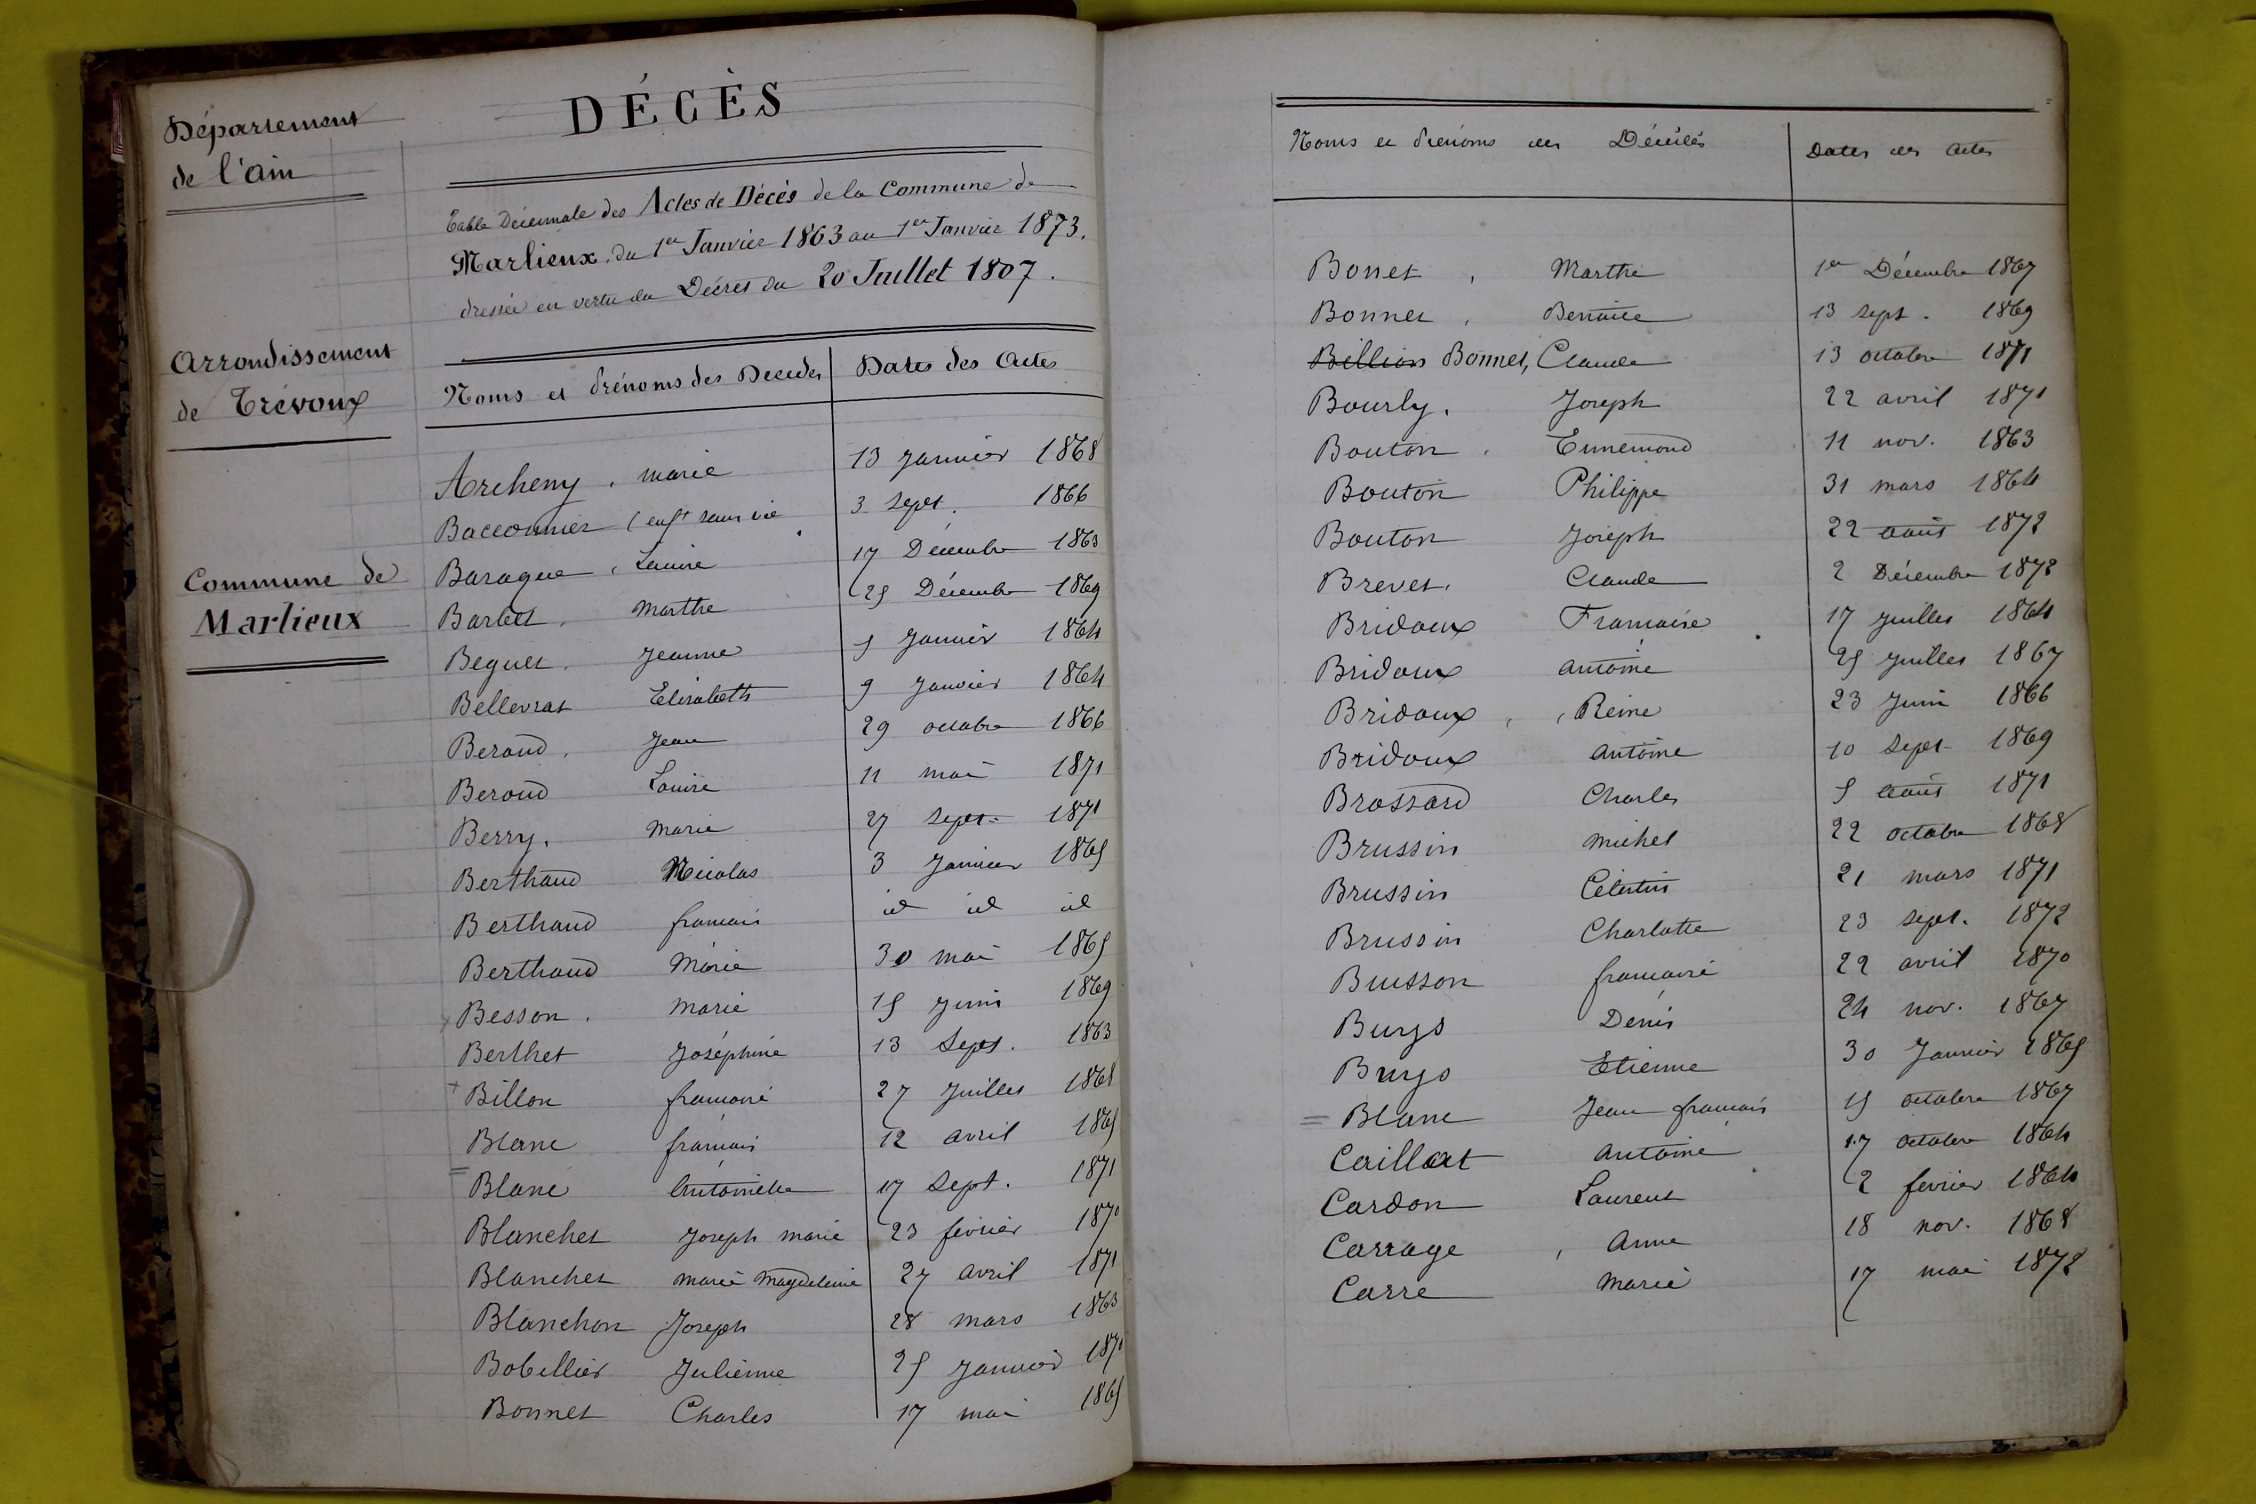 Département
de l'ain
Arrondissement
de Trévoux
Commune de
Marlieux
DÉCÈS
Table Décennale des Actes de Décès de la Commune de
Marlieux, du 1er Janvier 1863 au 1er Janvier 1873.
dressée en vertu du Décret du 20 Juillet 1807.
Noms et Prénoms des Décédés Dates des Actes
Archeny, marie 13 janvier 1868
Bacconnier (enft sans vie 3 Sept. 1866
Baraque, Louise 17 Décembre 1863
Barbet, Marthe 25 Décembre 1869
Beguet, Jeanne 5 Janvier 1864
Bellevrat Elisabeth 9 Janvier 1864
Beraud, Jean 29 octobre 1866
Beraud Louise 11 mai 1871
Berry, Marie 27 sept. 1871
Berthaud Nicolas 3 Janvier 1865
Berthaud francois id id id
Berthaud Marie 30 mai 1865
Besson, Marie 15 Juin 1869
Berthet Joséphine 13 Sept. 1863
+ Billon francoise 27 Juillet 1868
Blanc francois 12 avril 1865
= Blanc Antoinette 17 Sept. 1871
Blanchet Joseph marie 23 février 1870
Blanchet marie Magdeleine 27 avril 1871
Blanchon Joseph 28 mars 1863
Bobillier Julienne 25 Janvier 1871
Bonnet Charles 17 mai 1865
Noms et Prénoms des Décédés Dates des Actes
Bonet, Marthe 1er Décembre 1867
Bonnet, Benoite 13 sept. 1869
Billion Bonnet, Claude 13 octobre 1871
Bourly, Joseph 22 avril 1871
Bouton, Ennemond 11 nov. 1863
Bouton Philippe 31 mars 1864
Bouton Joseph 22 août 1872
Brevet, Claude 2 Décembre 1872
Bridoux Francoise 17 juillet 1864
Bridoux antoine 25 juillet 1867
Bridoux, Reine 23 Juin 1866
Bridoux Antoine 10 Sept. 1869
Brossard Charles 5 août 1871
Brussin michel 22 octobre 1868
Brussin Célestin 21 mars 1871
Brussin Charlotte 23 sept. 1872
Buisson francoise 22 avril 1870
Buys Denis 24 nov. 1867
Buys Etienne 30 Janvier 1865
= Blanc Jean francois 15 octobre 1867
Caillat Antoine 17 octobre 1864
Cardon Laurent 2 février 1864
Carrage, Anne 18 nov. 1868
Carre Marie 17 mai 1872